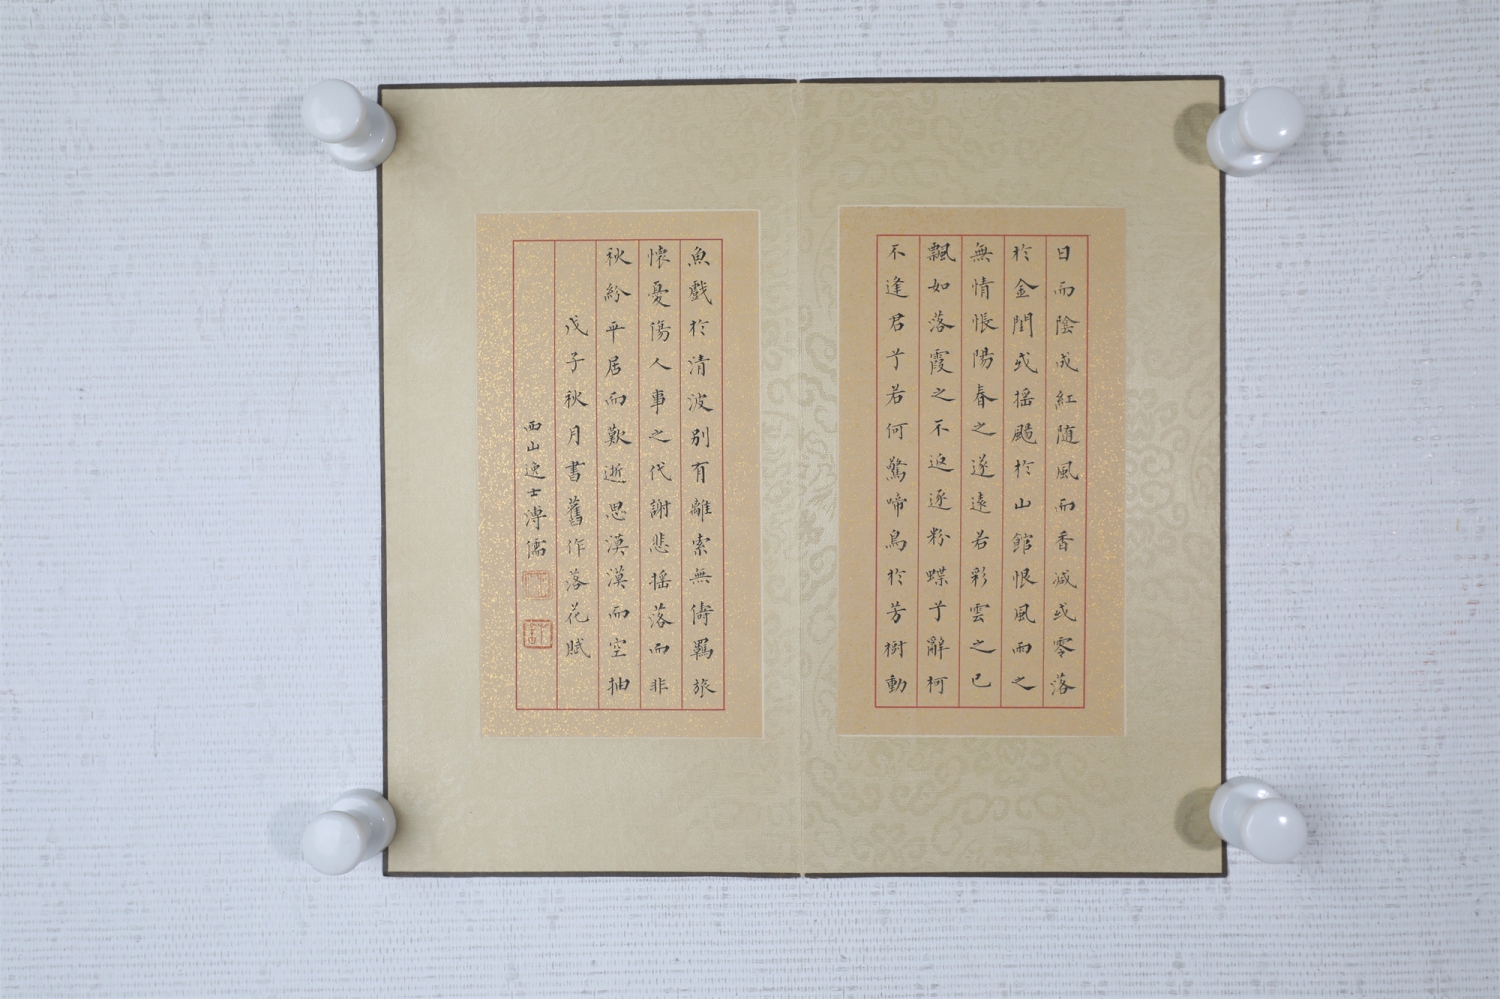 日而陰成紅随風而香减或零落
於金閨或搖颺於山館恨風雨之
無情悵陽春之遂遠若彩雲之已
飄如落霞之不返逐粉蝶兮辭柯
不逢君兮若何驚啼鳥於芳樹動
魚戲於清波別有離索無儔羈旅
懷憂傷人事之代謝悲搖落而非
秋紛平居而歎逝思漠漠而空抽
戊子秋月書舊作落花賦
西山逸士溥儒